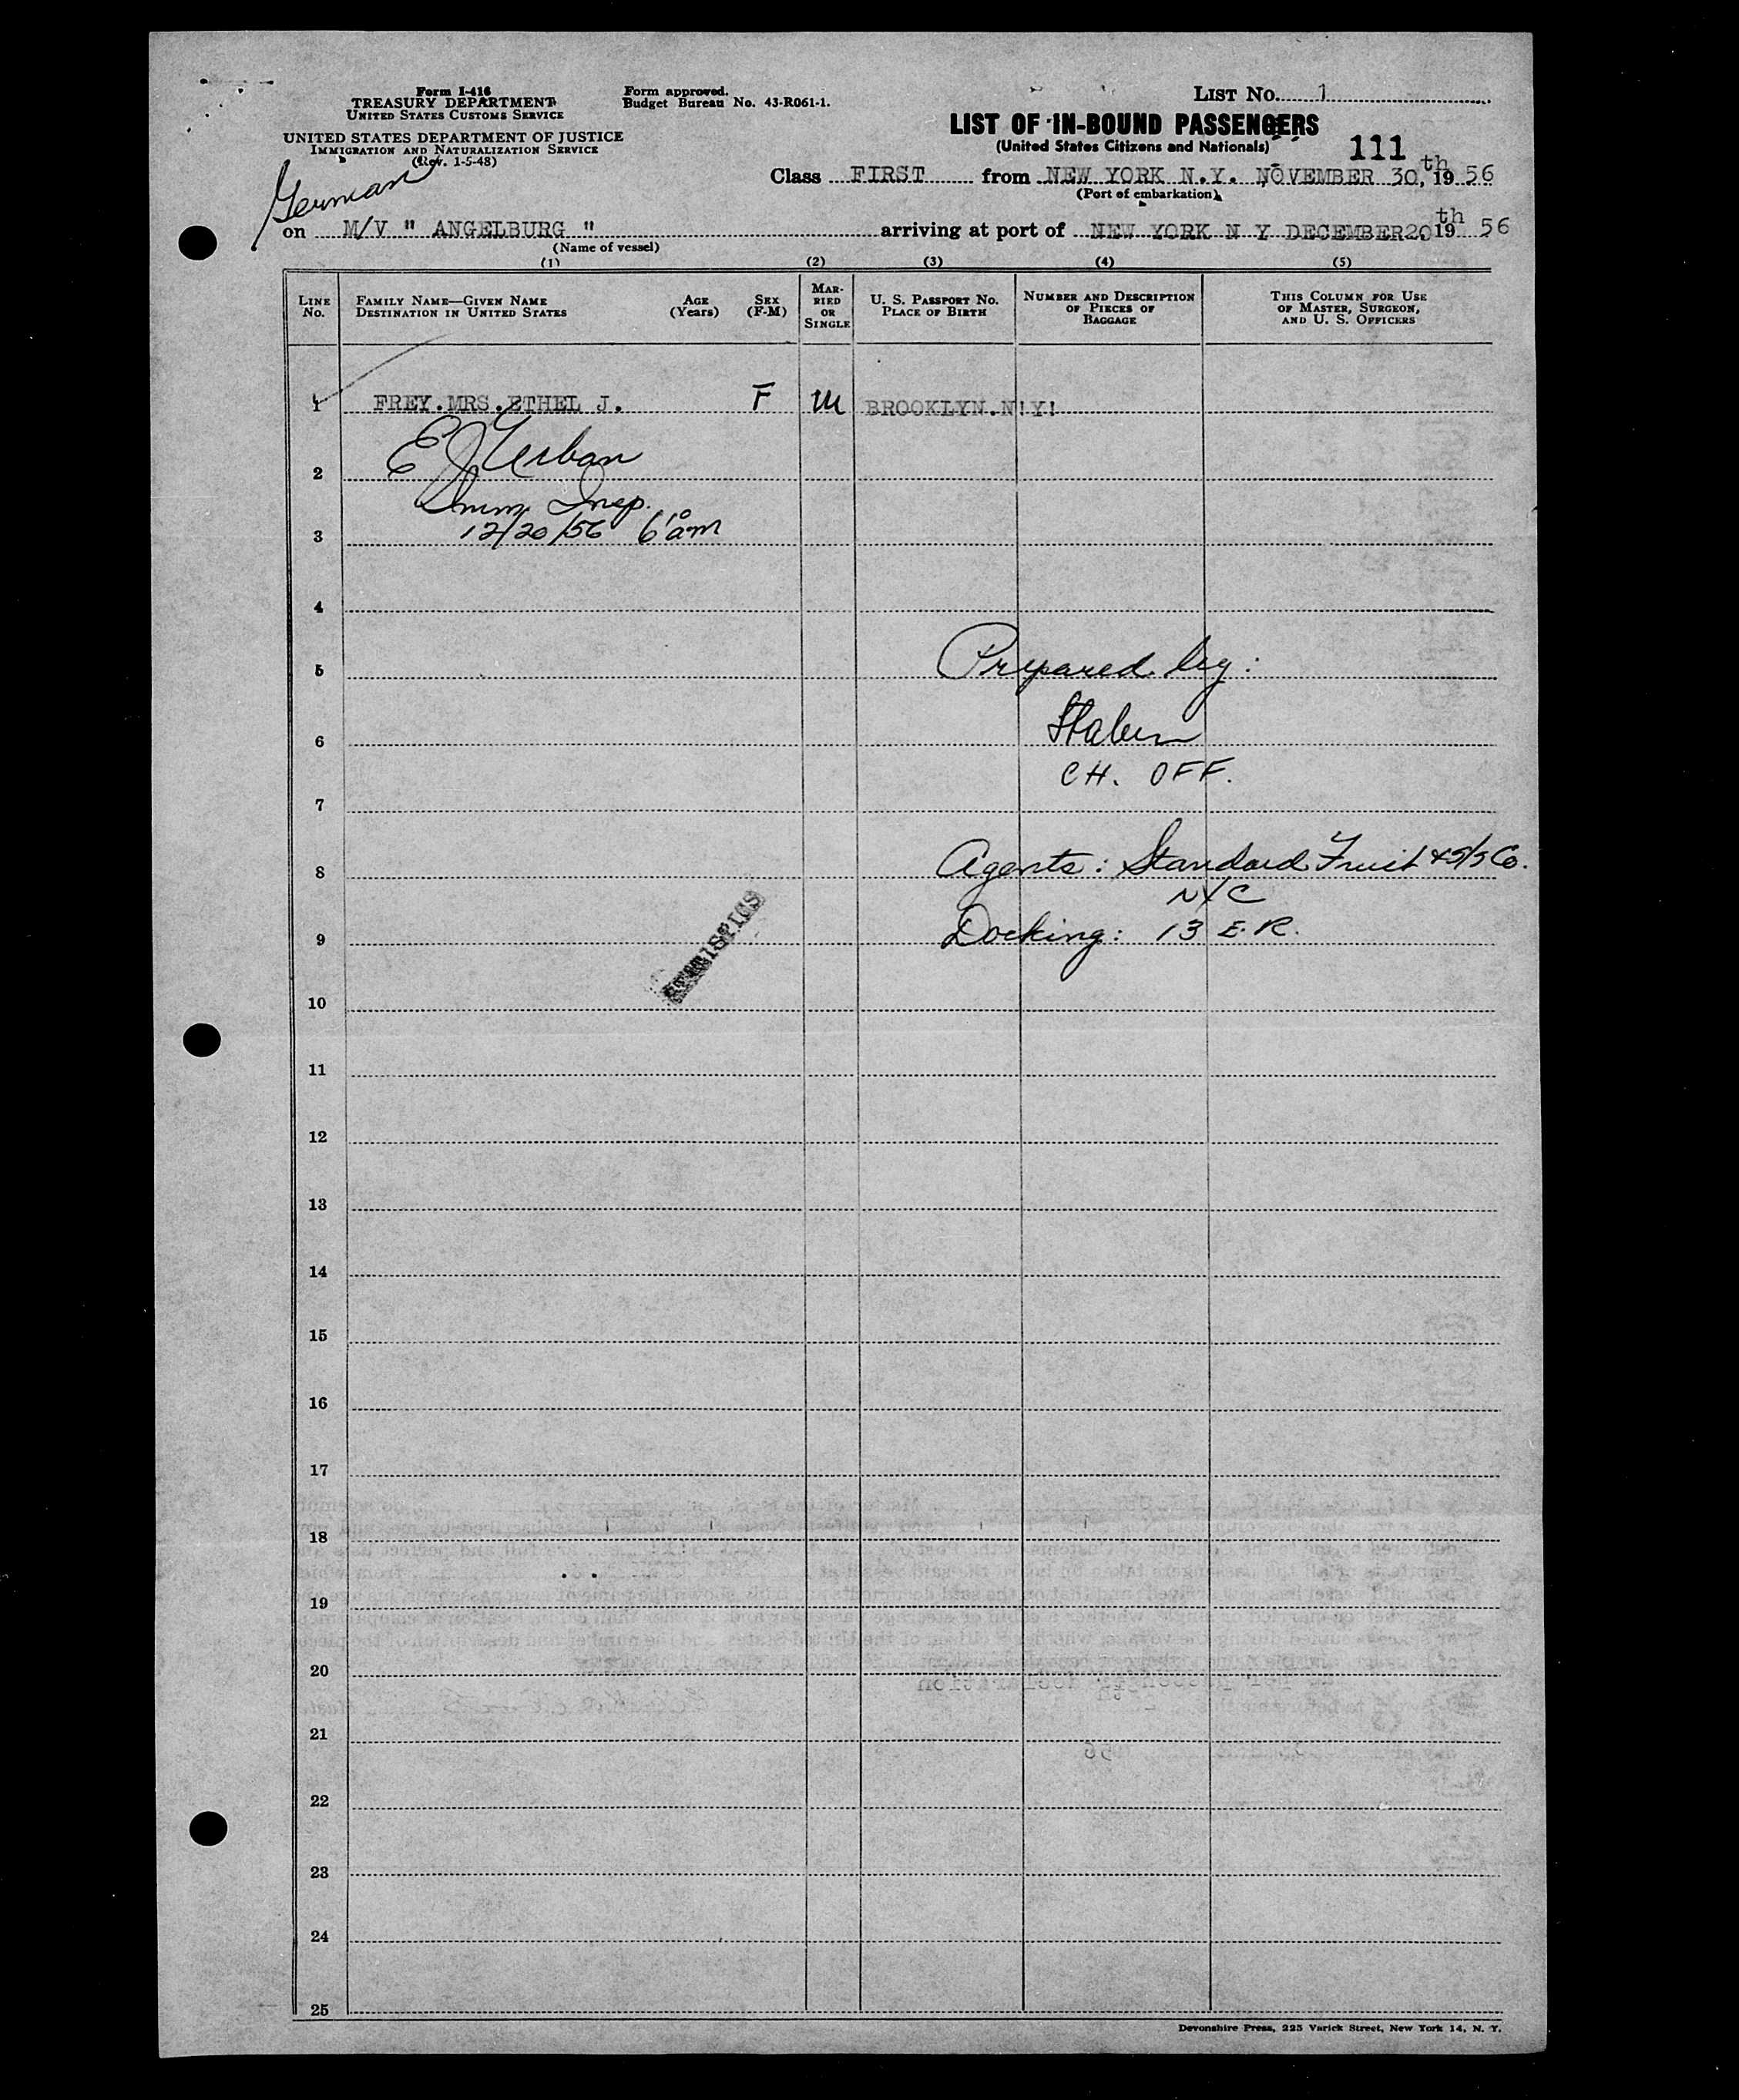 Form I-416
TREASURY DEPARTMENT
UNITED STATES CUSTOMS SERVICE
UNITED STATES DEPARTMENT OF JUSTICE
IMMIGRATION AND NATURALIZATION SERVICE
(Rev. 1-5-48)
Form approved.
Budget Bureau No. 43-R061-1.
LIST No. 1
LIST OF IN-BOUND PASSENGERS
(United States Citizens and Nationals)
111
German
Class FIRST from NEW YORK N.Y. NOVEMBER 30, th 1956
(Port of embarkation)
on M/V " ANGELBURG " arriving at port of NEW YORK N Y DECEMBER 20 th 1956
(Name of vessel)
(1) (2) (3) (4) (5)
LINE No.
FAMILY NAME—GIVEN NAME
DESTINATION IN UNITED STATES
AGE (Years)
SEX (F-M)
MARRIED OR SINGLE
U. S. PASSPORT No.
PLACE OF BIRTH
NUMBER AND DESCRIPTION OF PIECES OF BAGGAGE
THIS COLUMN FOR USE OF MASTER, SURGEON, AND U. S. OFFICERS
1 FREY.MRS.ETHEL J. F M BROOKLYN.N!Y!
E J Urban
2
Imm. Insp.
12/20/56 6 10 am
3
4
Prepared by:
5
6
CH. OFF.
7
Agents: Standard Fruit & S/S Co.
8
NYC
Docking: 13 E.R.
9
STATISTICS
10
11
12
13
14
15
16
17
18
19
20
21
22
23
24
25
Devonshire Press, 225 Varick Street, New York 14, N. Y.